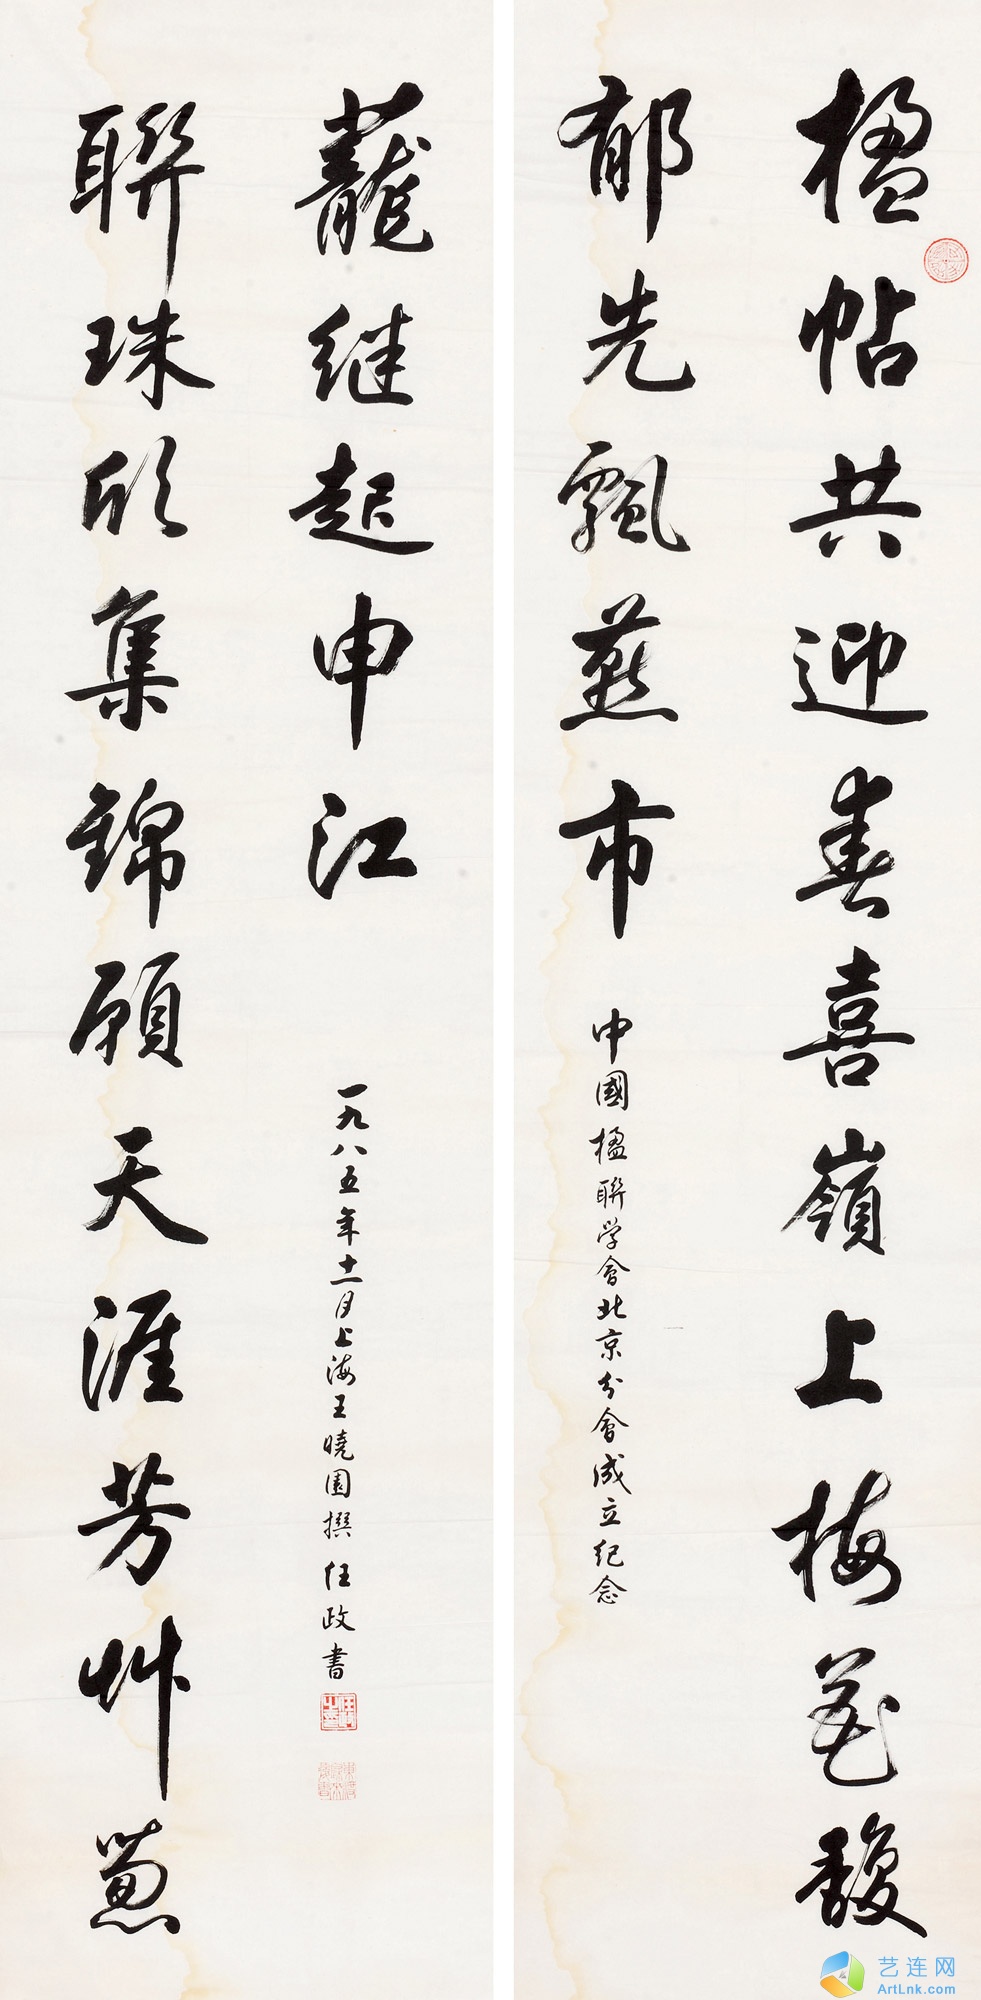 楹帖共迎春喜嶺上梅花馥
郁先飄燕市
中國楹聯学會北京分會成立纪念
聯珠欣集錦願天涯芳艸蔥
蘢继起申江
一九八五年十一月上海王曉園撰任政書
艺连网
ArtLnk.com